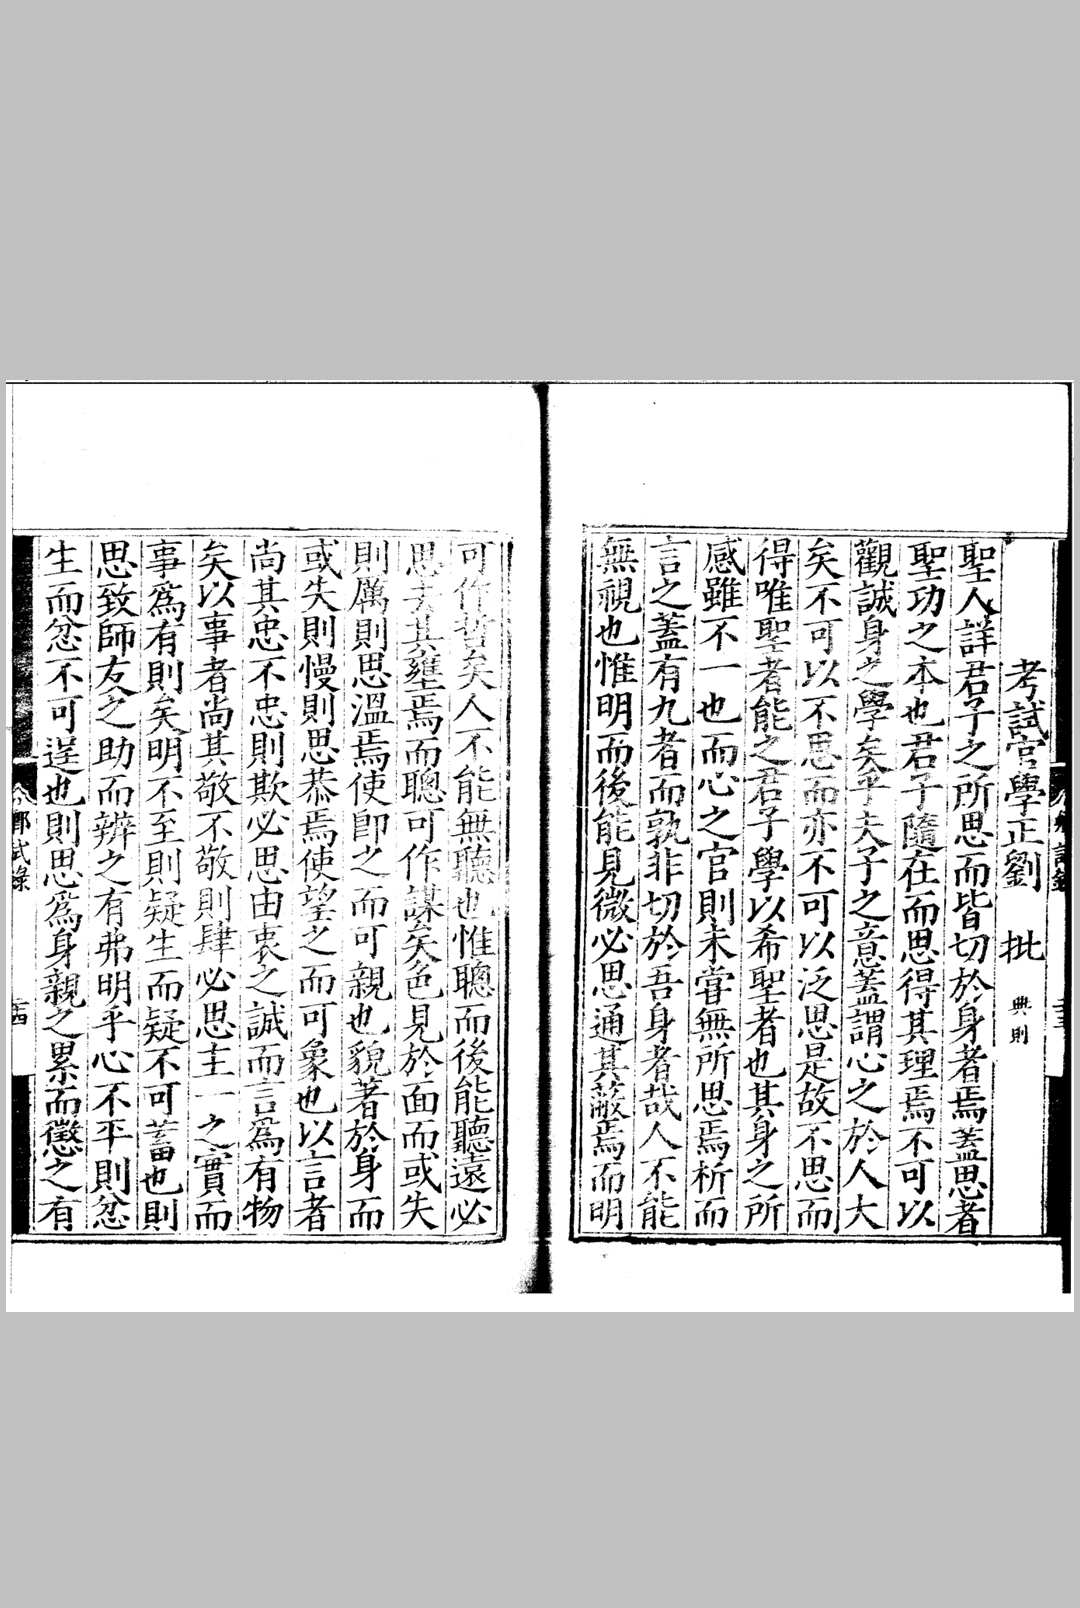 考試官學正劉　批　典則
聖人詳君子之所思而皆切於身者焉蓋思者
聖功之本也君子隨在而思得其理焉不可以
觀誠身之學矣乎夫子之意蓋謂心之於人大
矣不可以不思而亦不可以泛思是故不思而
得唯聖者能之君子學以希聖者也其身之所
感雖不一也而心之官則未嘗無所思焉析而
言之蓋有九者而孰非切於吾身者哉人不能
無視也惟明而後能見微必思通其蔽焉而明
可作哲矣人不能無聽也惟聰而後能聽遠必
思去其壅焉而聰可作謀矣色見於面而或失
則厲則思溫焉使卽之而可親也貌著於身而
或失則慢則思恭焉使望之而可象也以言者
尚其忠不忠則欺必思由衷之誠而言爲有物
矣以事者尚其敬不敬則肆必思主一之實而
事爲有則矣明不至則疑生而疑不可蓄也則
思致師友之助而辨之有弗明乎心不平則忿
生而忿不可逞也則思爲身親之累而懲之有
鄉試錄